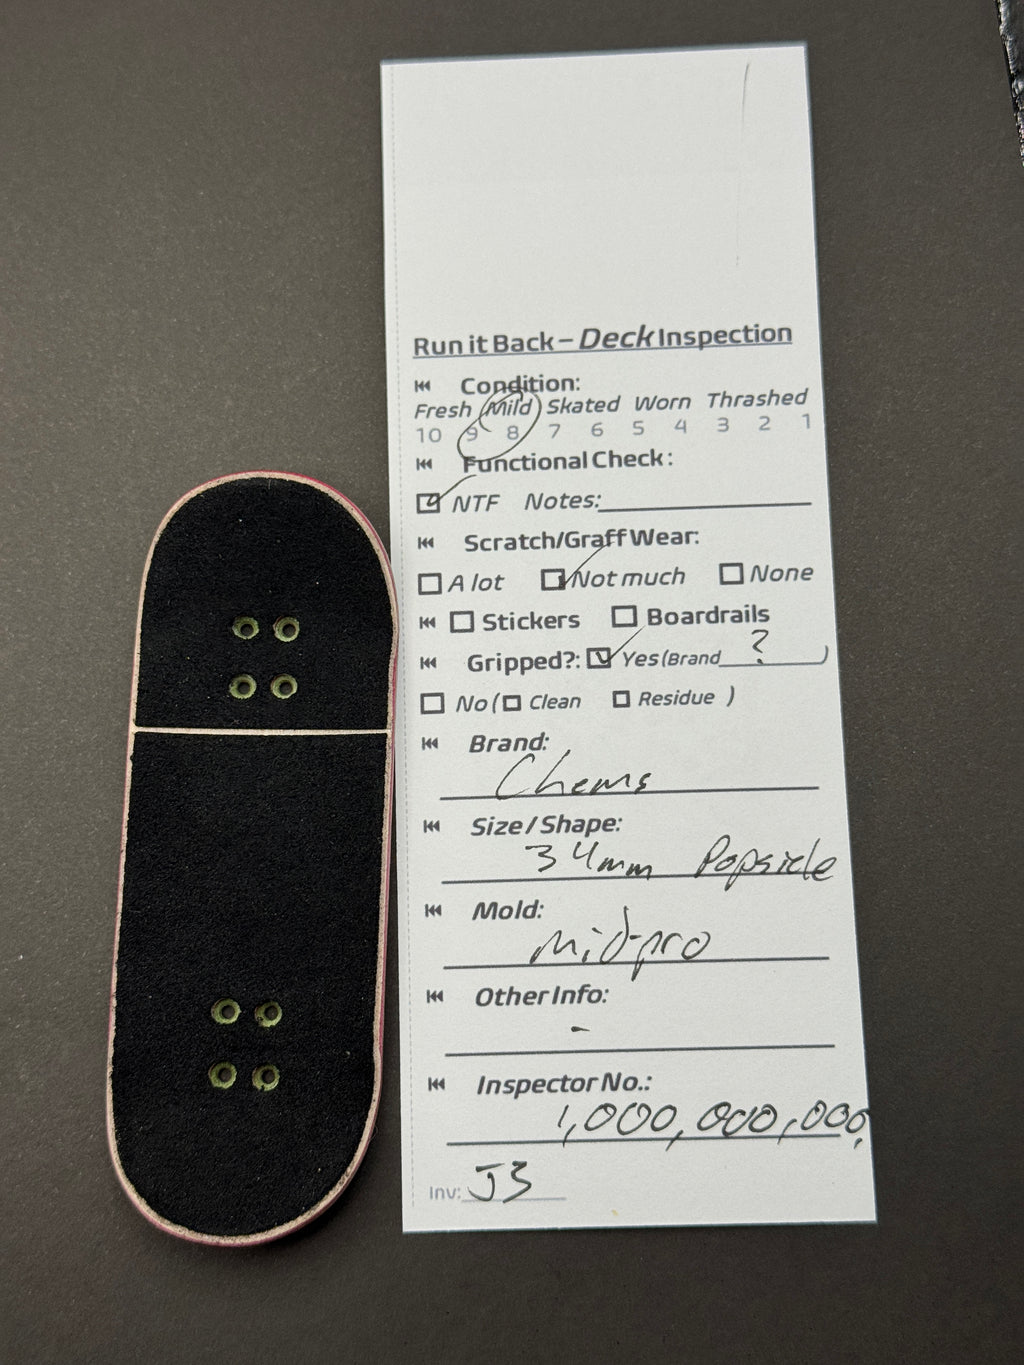 Run it Back – Deck Inspection
Condition:
Fresh Mild Skated Worn Thrashed
10 9 8 7 6 5 4 3 2 1
Functional Check:
NTF Notes:
Scratch/Graff Wear:
A lot Not much None
Stickers Boardrails
Gripped?: Yes (Brand ? )
No ( Clean Residue )
Brand:
Chems
Size / Shape:
34mm Popsicle
Mold:
Mid-pro
Other Info:
-
Inspector No.:
1,000,000,000,
Inv: J3